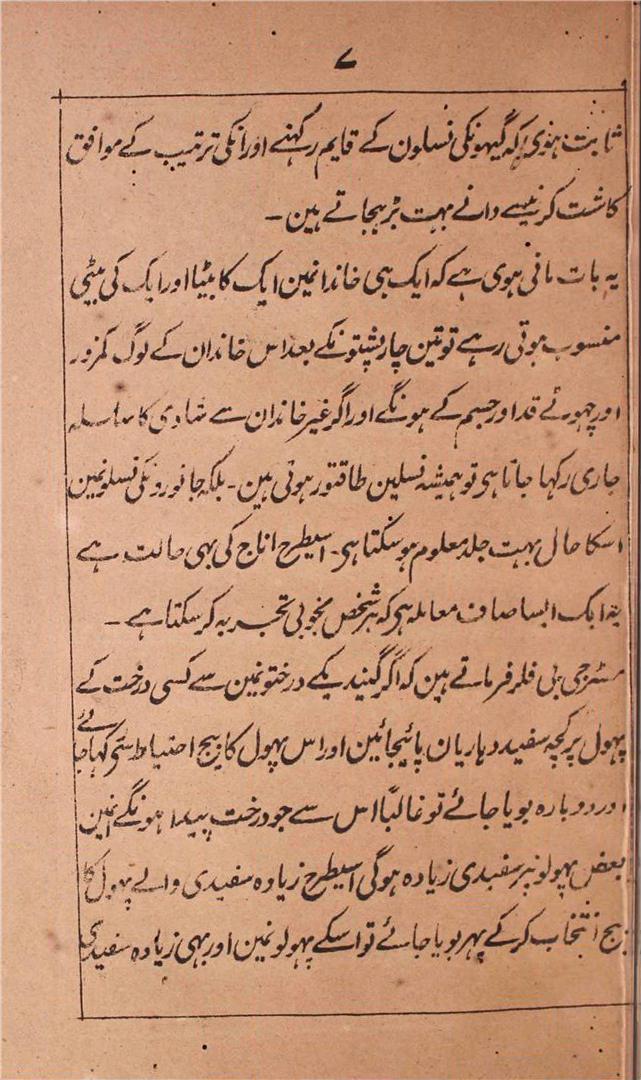 ۷
ثابت ہوی ہے کہ گیہونکی نسلون کے قایم رکہنے اور انکی ترتیب کے موافق
کاشت کرنیسے دانے بہت بڑہجاتے ہین ۔
یہ بات مانی ہوی ہے کہ ایک ہی خاندانمین ایک کا بیٹا اور ایک کی بیٹی
منسوب ہوتی رہے تو تین چار پشتونکے بعد اس خاندان کے لوگ کمزور
اور چہوٹے قد اور جسم کے ہونگے اور اگر غیر خاندان سے شادی کا سلسلہ
جاری رکہا جاتا ہی تو ہمیشہ نسلین طاقتور ہوتی ہین ۔ بلکہ جانورونکی نسلونمین
اسکا حال بہت جلد معلوم ہو سکتا ہی ۔ اسیطرح اناج کی بہی حالت ہے
یہ ایک ایسا صاف معاملہ ہی کہ ہر شخص بخوبی تجربہ کر سکتا ہے ۔
مسٹر جی بی فلر فرماتے ہین کہ اگر گیندیکے درختونمین سے کسی درخت کے
پہول پر کچہ سفید دہاریان پائیجائین اور اس پہول کا بیج احتیاط سے رکہا جائے
اور دوبارہ بویا جائے تو غالباً اس سے جو درخت پیدا ہونگے انمین
بعض پہولونپر سفیدی زیادہ ہوگی اسیطرح زیادہ سفیدی والے پہول کا
بیج انتخاب کر کے پہر بویا جائے تو اسکے پہولونمین اور بہی زیادہ سفیدی